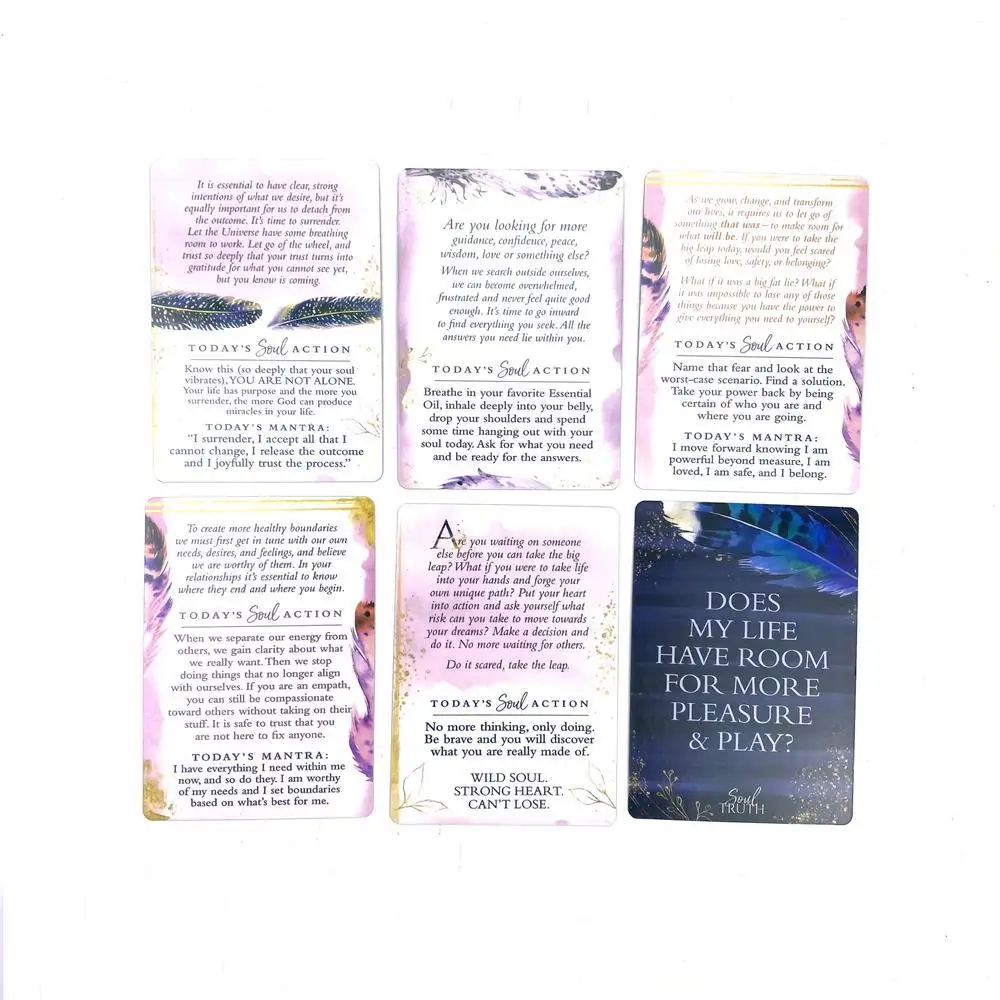 It is essential to have clear, strong
intentions of what we desire, but it's
equally important for us to detach from
the outcome. It's time to surrender.
Let the Universe have some breathing
room to work. Let go of the wheel, and
trust so deeply that your trust turns into
gratitude for what you cannot see yet,
but you know is coming.
TODAY'S Soul ACTION
Know this (so deeply that your soul
vibrates), YOU ARE NOT ALONE.
Your life has purpose and the more you
surrender, the more God can produce
miracles in your life.
TODAY'S MANTRA:
"I surrender, I accept all that I
cannot change, I release the outcome
and I joyfully trust the process."
Are you looking for more
guidance, confidence, peace,
wisdom, love or something else?
When we search outside ourselves,
we can become overwhelmed,
frustrated and never feel quite good
enough. It's time to go inward
to find everything you seek. All the
answers you need lie within you.
TODAY'S Soul ACTION
Breathe in your favorite Essential
Oil, inhale deeply into your belly,
drop your shoulders and spend
some time hanging out with your
soul today. Ask for what you need
and be ready for the answers.
As we grow, change, and transform
our lives, it requires us to let go of
something that was—to make room for
what will be. If you were to take the
big leap today, would you feel scared
of losing love, safety, or belonging?
What if it was a big fat lie? What if
it was impossible to lose any of those
things because you have the power to
give everything you need to yourself?
TODAY'S Soul ACTION
Name that fear and look at the
worst-case scenario. Find a solution.
Take your power back by being
certain of who you are and
where you are going.
TODAY'S MANTRA:
I move forward knowing I am
powerful beyond measure, I am
loved, I am safe, and I belong.
To create more healthy boundaries
we must first get in tune with our own
needs, desires, and feelings, and believe
we are worthy of them. In your
relationships it's essential to know
where they end and where you begin.
TODAY'S Soul ACTION
When we separate our energy from
others, we gain clarity about what
we really want. Then we stop
doing things that no longer align
with ourselves. If you are an empath,
you can still be compassionate
toward others without taking on their
stuff. It is safe to trust that you
are not here to fix anyone.
TODAY'S MANTRA:
I have everything I need within me
now, and so do they. I am worthy
of my needs and I set boundaries
based on what's best for me.
Are you waiting on someone
else before you can take the big
leap? What if you were to take life
into your hands and forge your
own unique path? Put your heart
into action and ask yourself what
risk can you take to move towards
your dreams? Make a decision and
do it. No more waiting for others.
Do it scared, take the leap.
TODAY'S Soul ACTION
No more thinking, only doing.
Be brave and you will discover
what you are really made of.
WILD SOUL.
STRONG HEART.
CAN'T LOSE.
DOES
MY LIFE
HAVE ROOM
FOR MORE
PLEASURE
& PLAY?
Soul
TRUTH